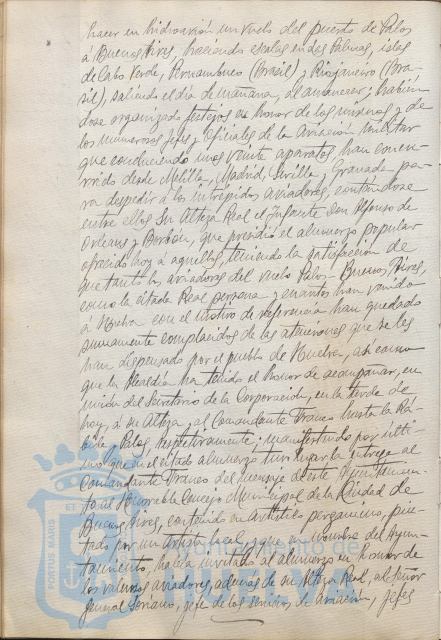 hacer en hidroavión un vuelo del puerto de Palos
á Buenos Aires, haciendo escalas en Las Palmas, islas
de Cabo Verde, Pernambuco (Brasil) y Riojaneiro (Bra-
sil), saliendo el día de mañana, al amanecer; habién
dose organizado festejos en honor de los mismos y de
los numerosos Jefes y Oficiales de la Aviación militar
que conduciendo unos veinte aparatos han concu-
rrido desde Melilla, Madrid, Sevilla y Granada pa-
ra despedir á los intrépidos aviadores, contándose
entre ellos Su Alteza Real el Infante Don Alfonso de
Orleans y Borbón, que presidió el almuerzo popular
ofrecido hoy á aquellos, teniendo la satisfacción de
que tanto los aviadores del vuelo Palos-Buenos Aires,
como la citada Real persona y cuantos han venido
á Huelva con el motivo de referencia han quedado
sumamente complacidos de las atenciones que se les
han dispensado por el pueblo de Huelva, así como
que la Alcaldía ha tenido el honor de acompañar, en
unión del Secretario de la Corporación, en la tarde de
hoy, á su Alteza y al Comandante Franco hasta la Rá-
bida y Palos, respectivamente; manifestando por últi-
mo que en el citado almuerzo tuvo lugar la entrega al
Comandante Franco del mensaje de este Ayuntamien-
to al Honorable Concejo Municipal de la Ciudad de
Buenos Aires, contenido en artístico pergamino, pin-
tado por un artista local, y que en nombre del Ayun-
tamiento, había invitado al almuerzo en honor de
los valerosos aviadores, además de su Alteza Real, al Señor
General Soriano, Jefe de los servicios de Aviación, Jefes
PORTUS MARIS
Ayuntamiento de